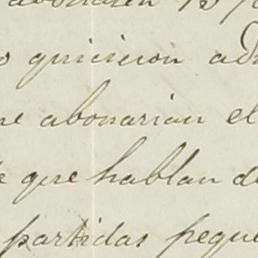 abonarien 15 %
quisieron ad
ne abonarian el
e que hablan de
partidas peque